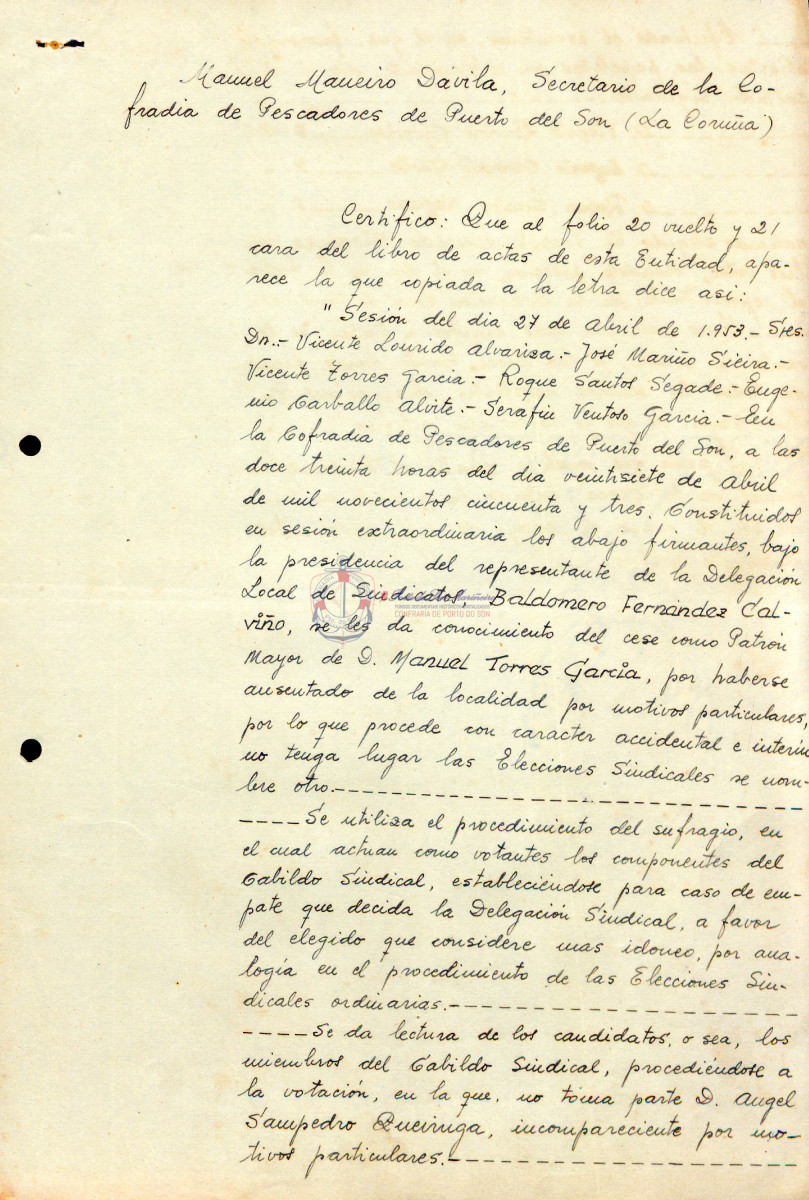 Manuel Maneiro Dávila, Secretario de la Co-
fradia de Pescadores de Puerto del Son (La Coruña)
Certifico: Que al folio 20 vuelto y 21
cara del libro de actas de esta Entidad, apa-
rece la que copiada a la letra dice asi:
"Sesión del dia 27 de Abril de 1.953.- Sres.
Dn.- Vicente Lourido Alvariza.- José Mariño Sieira.-
Vicente Torres Garcia.- Roque Santos Segade.- Euge-
nio Carballo Alvite.- Serafin Ventoso Garcia.- En
la Cofradia de Pescadores de Puerto del Son, a las
doce treinta horas del dia veintisiete de Abril
de mil novecientos cincuenta y tres. Constituidos
en sesión extraordinaria los abajo firmantes, bajo
la presidencia del representante de la Delegación
Local de Sindicatos, Baldomero Fernández Cal-
viño, se les da conocimiento del cese como Patrón
Mayor de D. Manuel Torres García, por haberse
ausentado de la localidad por motivos particulares,
por lo que procede con caracter accidental e interin
no tenga lugar las Elecciones Sindicales se nom-
bre otro.-
Se utiliza el procedimiento del sufragio, en
el cual actuan como votantes los componentes del
Cabildo Sindical, estableciéndose para caso de em-
pate que decida la Delegación Sindical, a favor
del elegido que considere mas idoneo, por ana-
logía en el procedimiento de las Elecciones Sin-
dicales ordinarias.-
Se da lectura de los candidatos, o sea, los
miembros del Cabildo Sindical, procediéndose a
la votación, en la que, no toma parte D. Angel
Sampedro Queiruga, incompareciente por mo-
tivos particulares.-
FONDOS DOCUMENTAIS HISTÓRICOS DIXITALIZADOS
CONFRARÍA DE PORTO DO SON